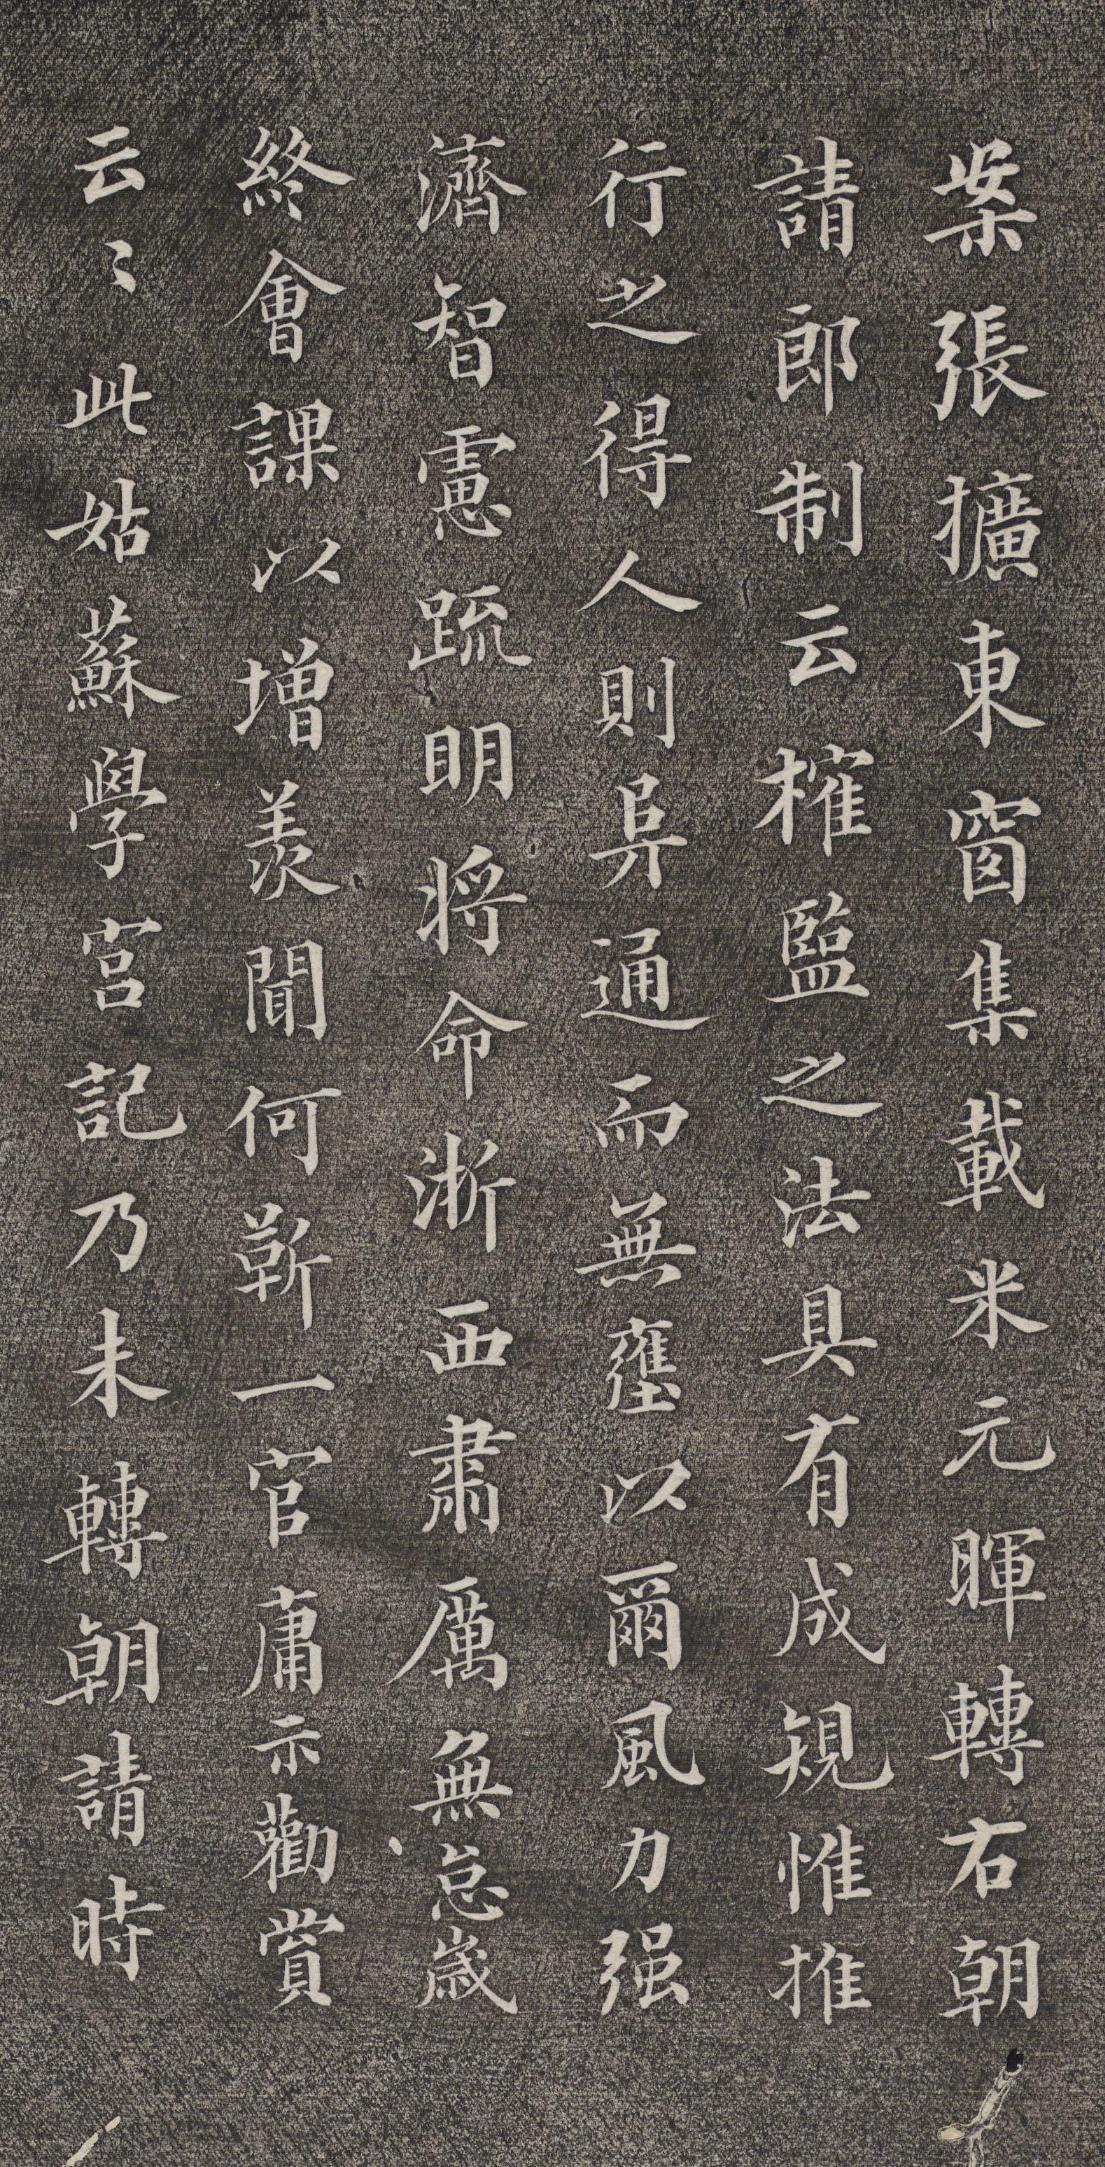 案張擴東窗集載米元暉轉右朝
請郎制云搉監之法具有成規惟推
行之得人則阜通而無壅以爾風力强
濟智慮疏明將命淛西肅厲無怠歲
終會課以增羨聞何靳一官庸示勸賞
云〻此姑蘇學宫記乃未轉朝請時